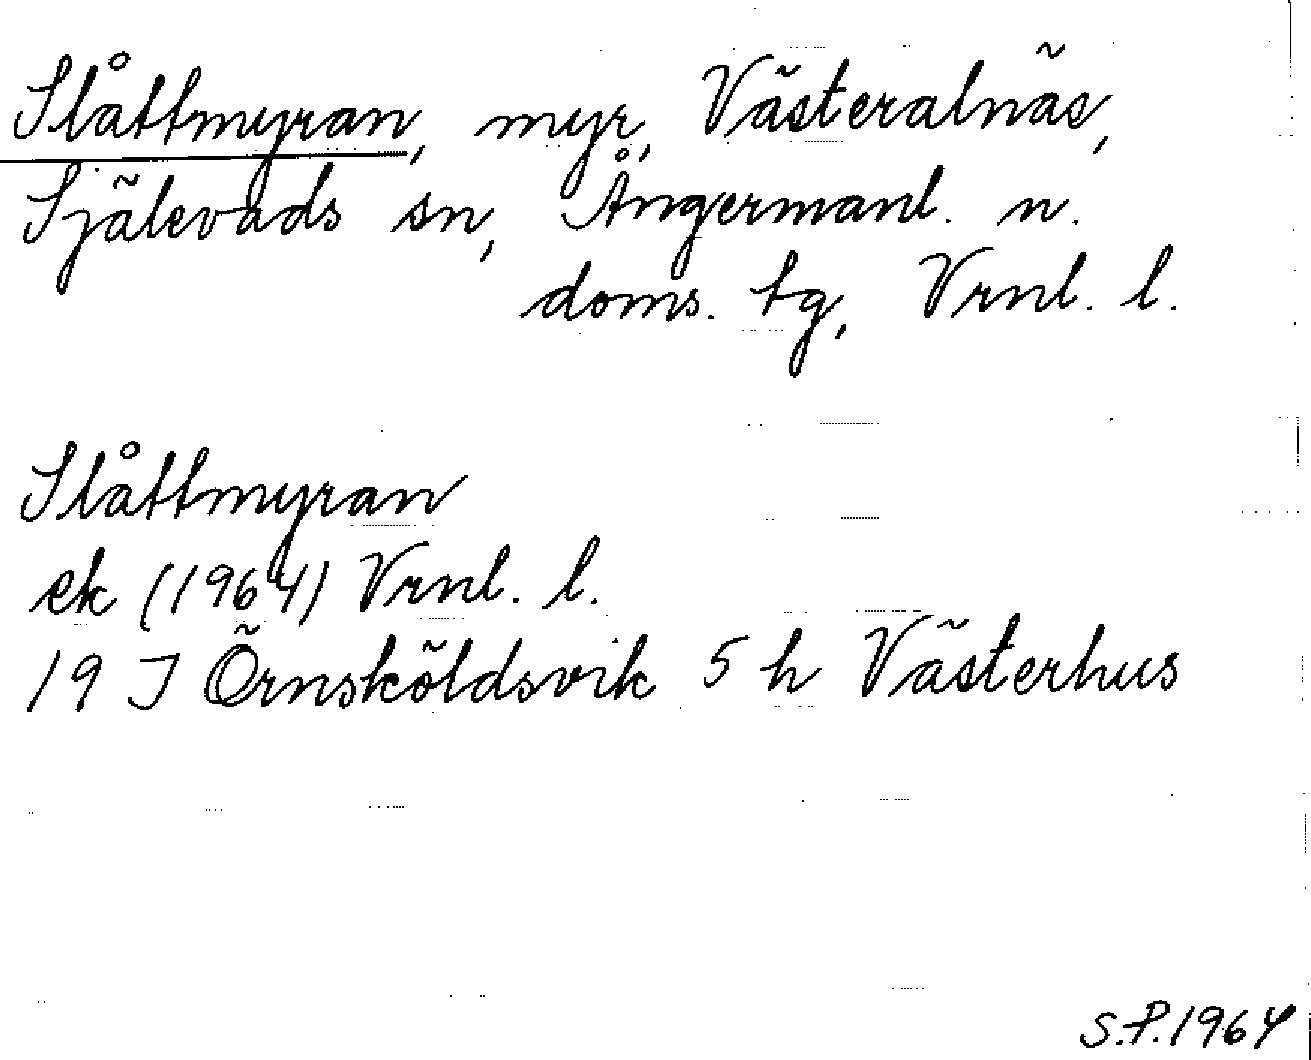 Slåttmyran, myr, Västeralnäs,
Själevads sn, Ångermanl. n.
doms. tg, Vrnl. l.
Slåttmyran
ek (1964) Vrnl. l.
19 J Örnsköldsvik 5 h Västerhus
S.P. 1964